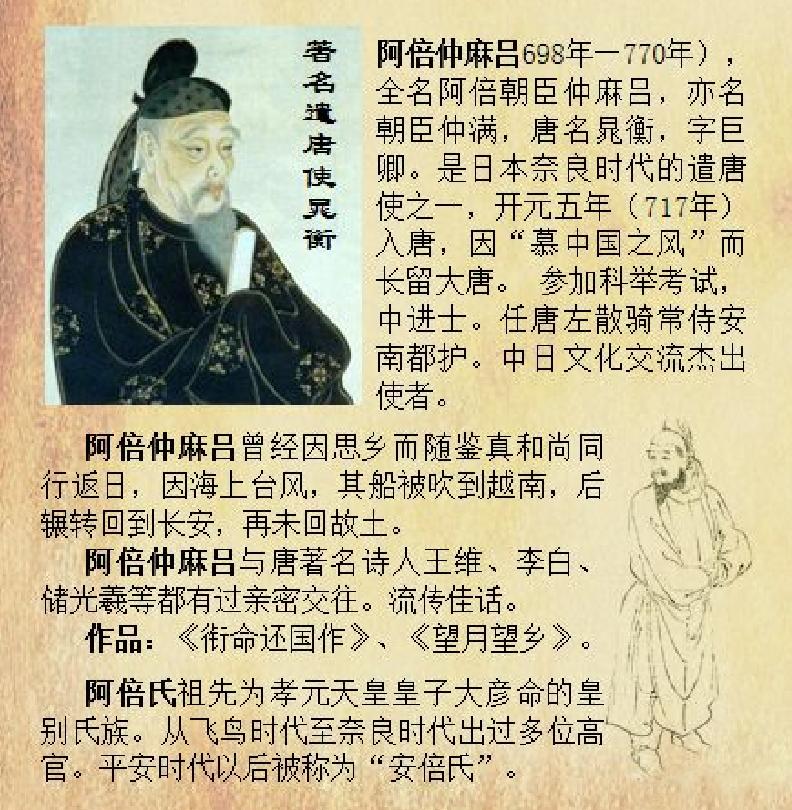 著名遣唐使晁衡
阿倍仲麻吕698年—770年），
全名阿倍朝臣仲麻吕，亦名
朝臣仲满，唐名晁衡，字巨
卿。是日本奈良时代的遣唐
使之一，开元五年（717年）
入唐，因“慕中国之风”而
长留大唐。 参加科举考试，
中进士。任唐左散骑常侍安
南都护。中日文化交流杰出
使者。
阿倍仲麻吕曾经因思乡而随鉴真和尚同
行返日，因海上台风，其船被吹到越南，后
辗转回到长安，再未回故土。
阿倍仲麻吕与唐著名诗人王维、李白、
储光羲等都有过亲密交往。流传佳话。
作品：《衔命还国作》、《望月望乡》。
阿倍氏祖先为孝元天皇皇子大彦命的皇
别氏族。从飞鸟时代至奈良时代出过多位高
官。平安时代以后被称为“安倍氏”。